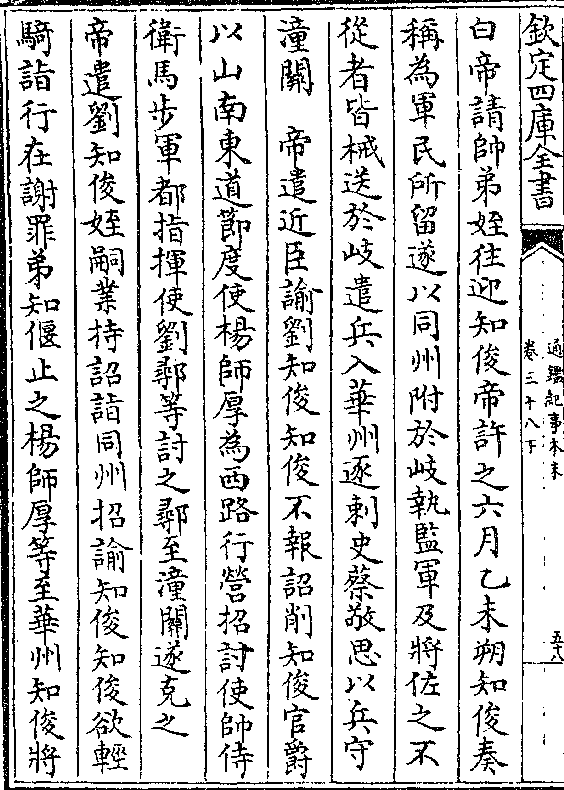 欽定四庫全書
通鑑紀事本末
卷三十八下
五十八
白帝請帥弟姪往迎知俊帝許之六月乙未朔知俊奏
稱為軍民所留遂以同州附於岐執監軍及將佐之不
從者皆械送於岐遣兵入華州逐刺史蔡敬思以兵守
潼關　帝遣近臣諭劉知俊知俊不報詔削知俊官爵
以山南東道節度使楊師厚為西路行營招討使帥侍
衛馬步軍都指揮使劉鄩等討之鄩至潼關遂克之
帝遣劉知俊姪嗣業持詔詣同州招諭知俊知俊欲輕
騎詣行在謝罪弟知偃止之楊師厚等至華州知俊將